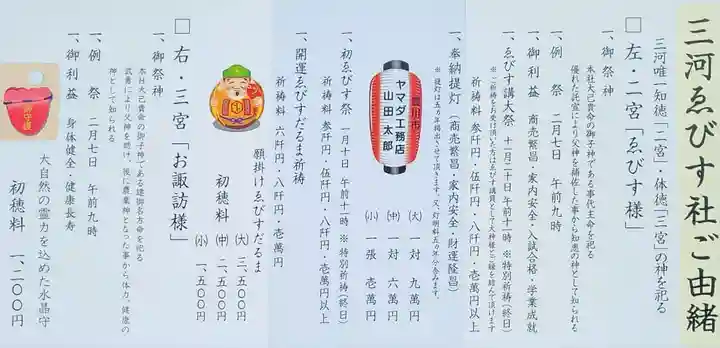 三河ゑびす社ご由緒
三河唯一知徳「二宮」・体徳「三宮」の神を祀る
□ 左・二宮「ゑびす様」
一、御祭神
本社大己貴命の御子神である事代主命を祀る
優れた託宣により父神を補佐した事から知恵の神として知られる
一、例　祭　二月七日　午前九時
一、御利益　商売繁昌・家内安全・入試合格・学業成就
一、ゑびす講大祭　十一月二十日　午前十一時　※特別祈祷（終日）
※ご祈祷をお受け頂いた方はゑびす講員として大神様とご縁を結んで頂けます
祈祷料　参阡円・伍阡円・八阡円・壱萬円以上
一、奉納提灯（商売繁昌・家内安全・財運隆昌）
※提灯は五カ年掲出させて頂きます。又、灯明料五カ年分含みます。
豊川市
ヤマダ工務店
山田太郎
（大）一対　九萬円
（中）一対　六萬円
（小）一張　壱萬円
一、初ゑびす祭　一月十日　午前十一時　※特別祈祷（終日）
祈祷料　参阡円・伍阡円・八阡円・壱萬円以上
一、開運ゑびすだるま祈祷
祈祷料　六阡円・八阡円・壱萬円
願掛けゑびすだるま
初穂料
（大）三、五〇〇円
（中）二、五〇〇円
（小）一、五〇〇円
□ 右・三宮「お諏訪様」
一、御祭神
本社大己貴命の御子神である建御名方命を祀る
武勇により父神を助け、後に農業神となった事から体力、健康の
神として知られる
一、例　祭　二月七日　午前九時
一、御利益　身体健全・健康長寿
大自然の霊力を込めた水晶守
初穂料　一、二〇〇円